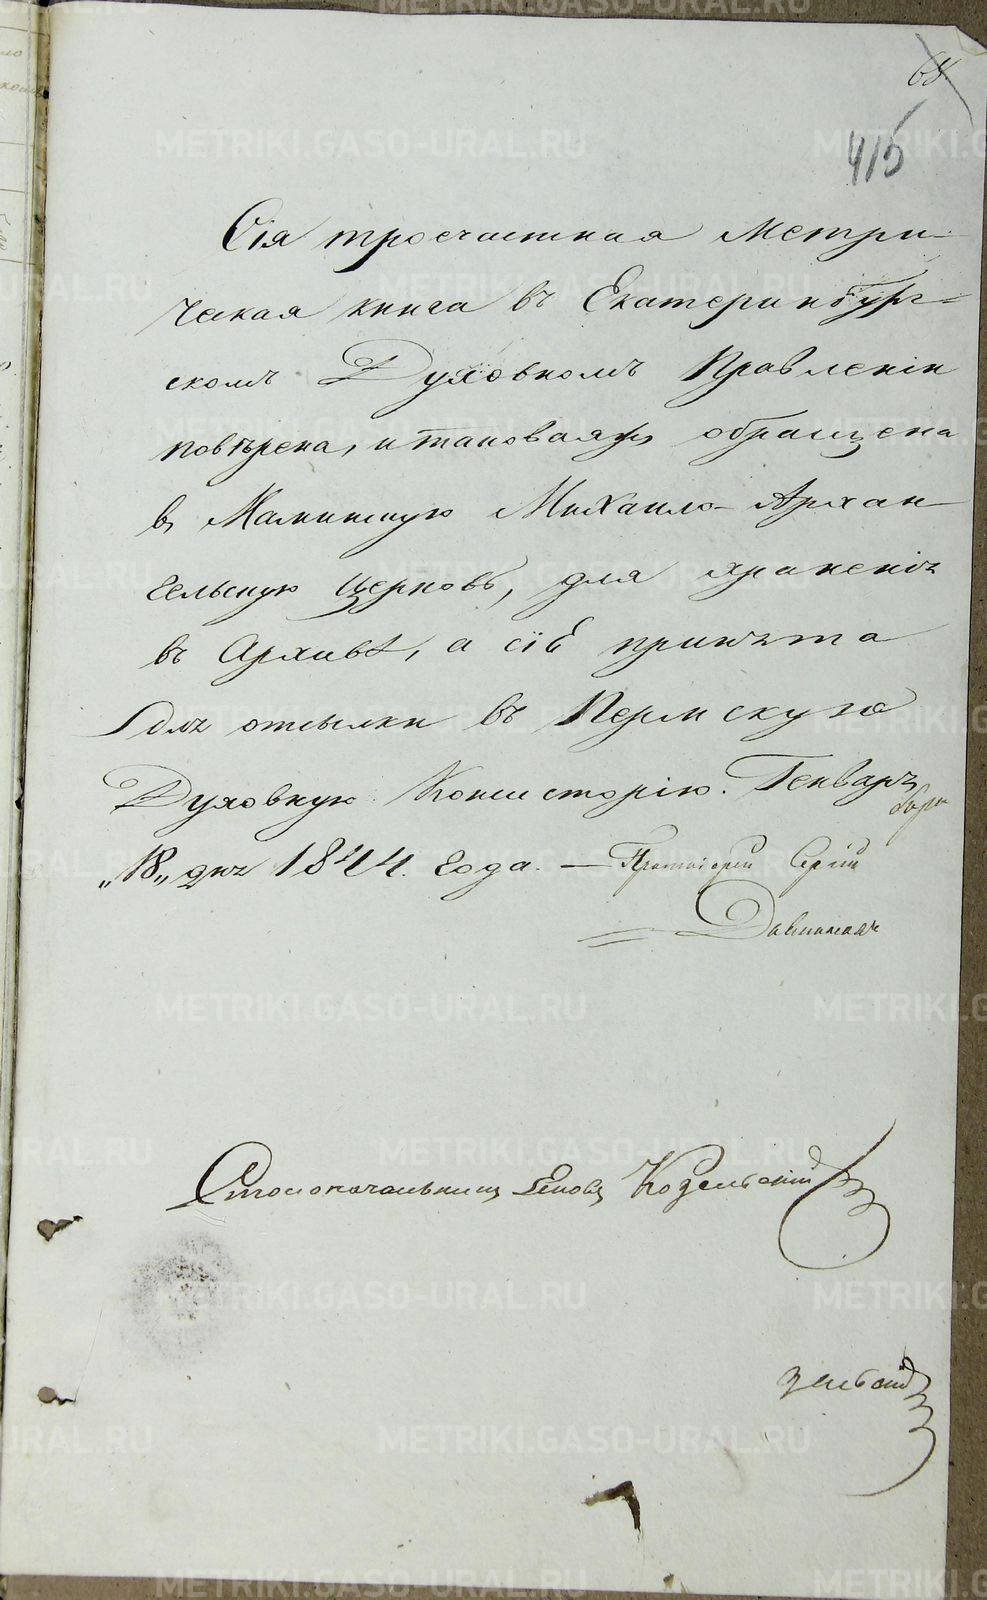 68
415
Сія троечастная Метри-
ческая книга въ Екатеринбург-
скомъ Духовномъ Правленіи
повѣрена, и таковая обращена
въ Малинскую Михаило-Архан-
гельскую церковь, для храненія
въ Архивѣ, а сіѣ принята
для отсылки въ Пермскую
Духовную Консисторію. Генваря
„18„ дня 1844. Года. — Протоіерей Сергій
Столоначальникъ Козельскій
METRIKI.GASO-URAL.RU